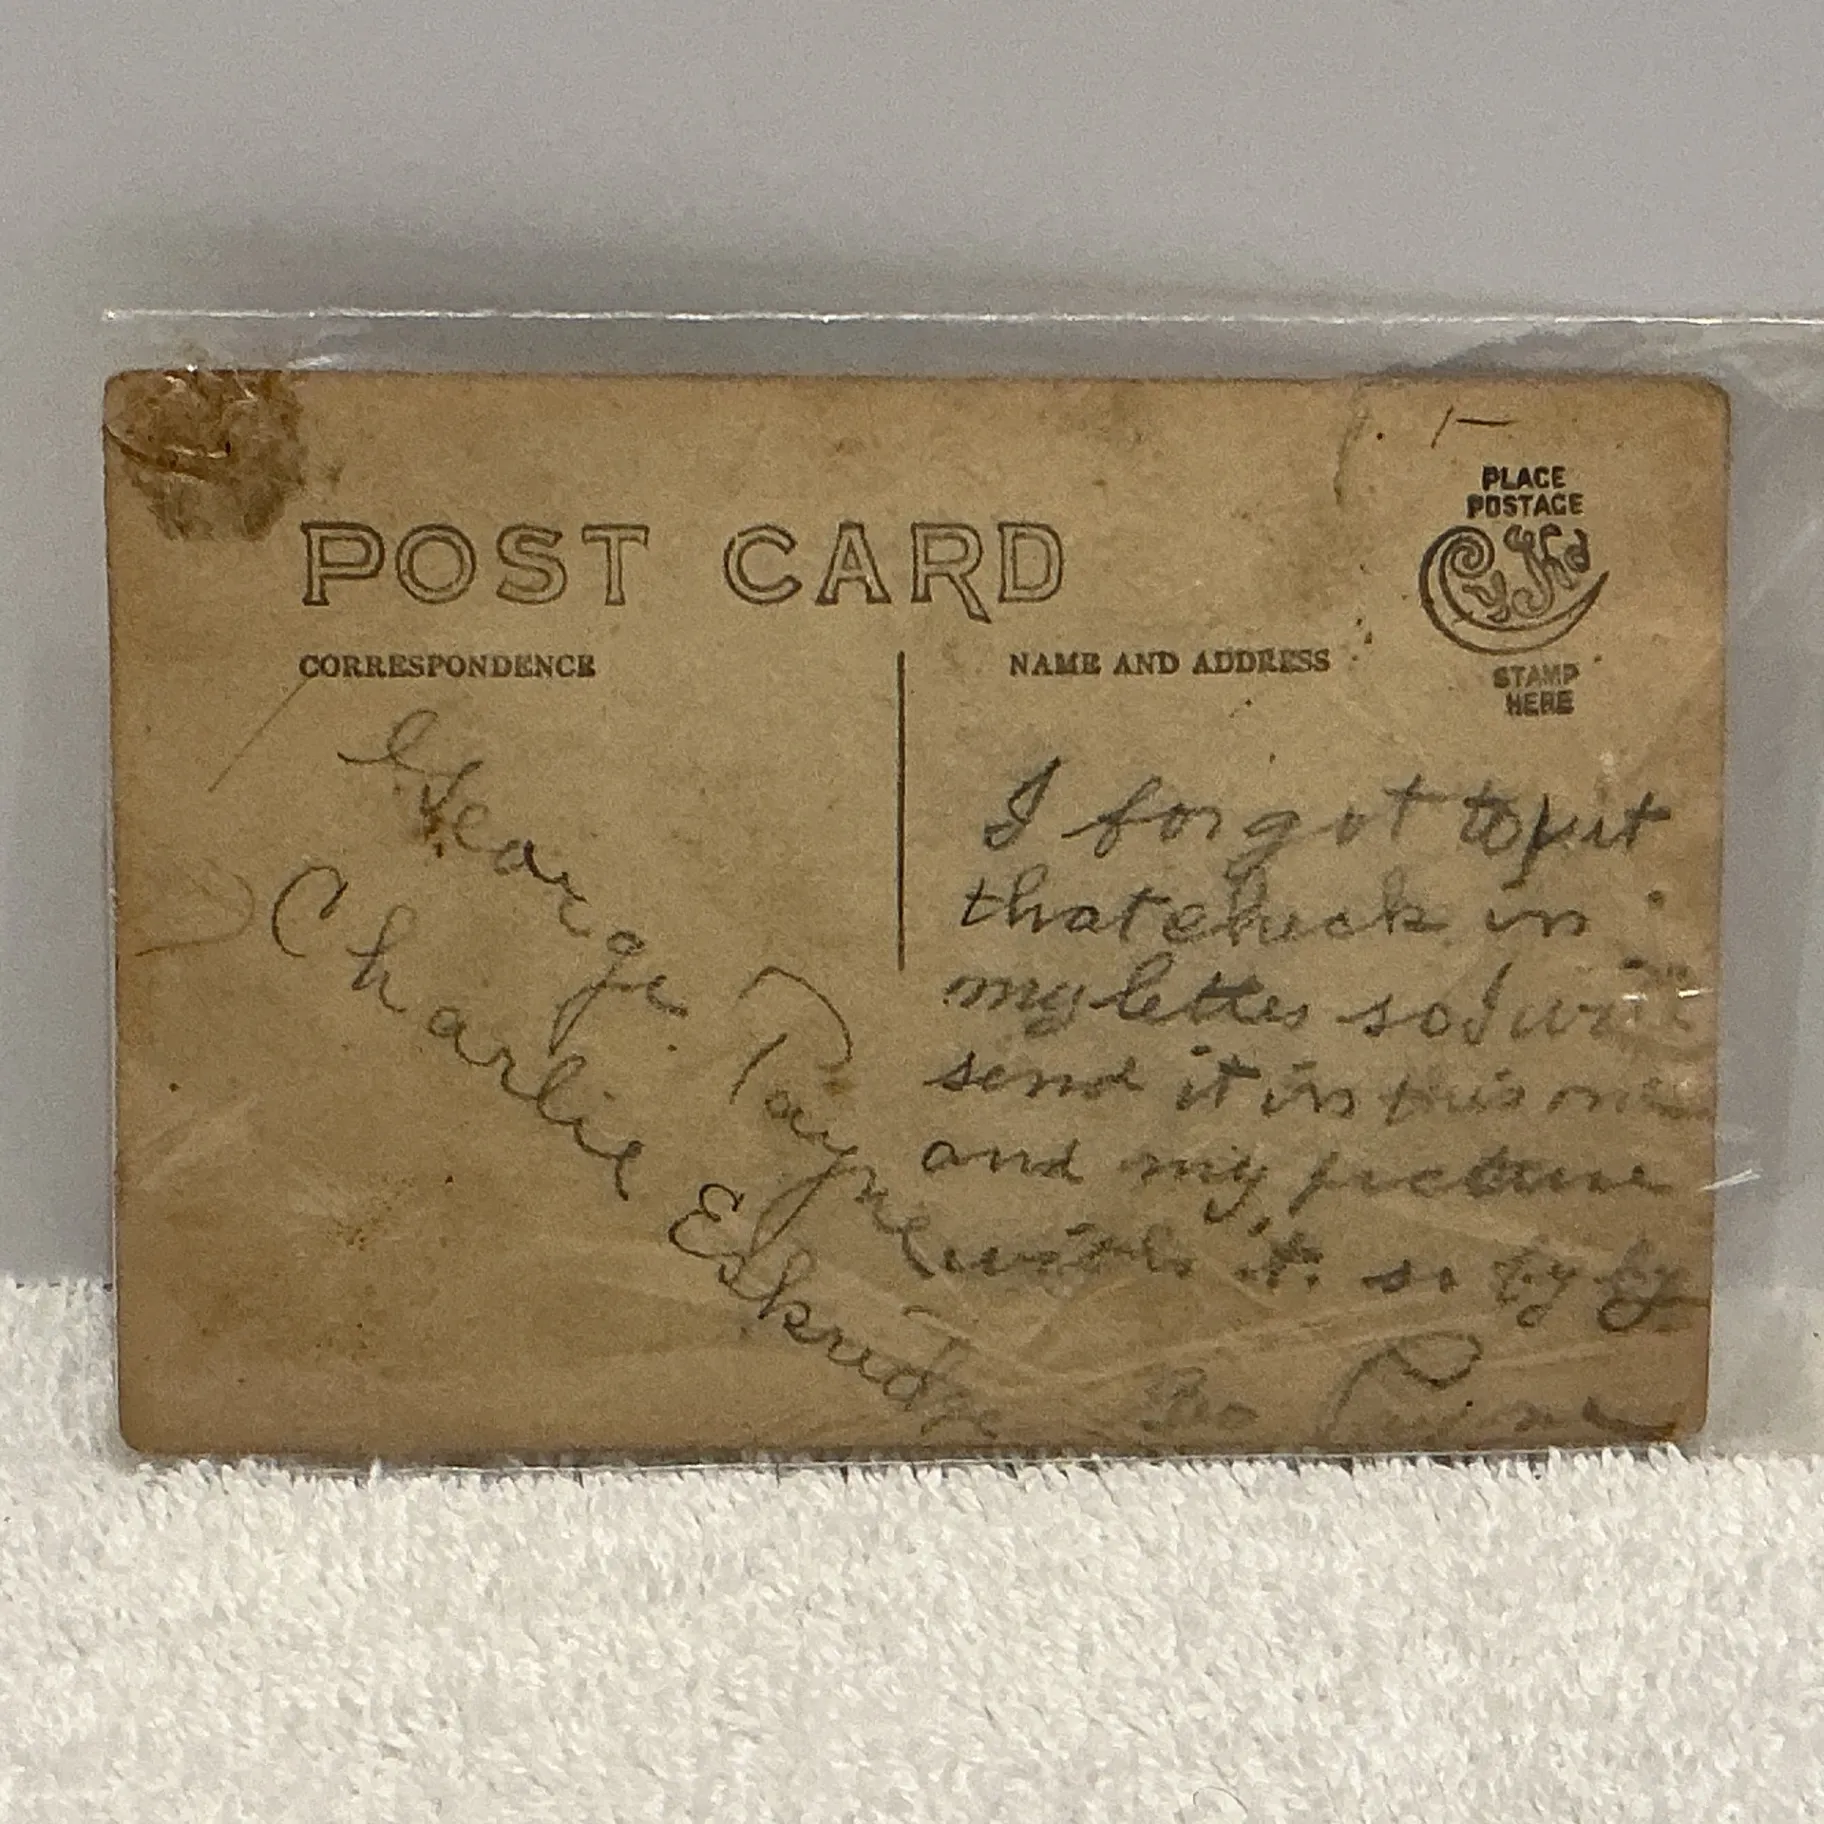 POST CARD
CORRESPONDENCE
NAME AND ADDRESS
PLACE
POSTAGE
STAMP
HERE
George Payne
Charlie Eskridge
I forgot to put
that check in
my letter so I will
send it in this one
and my picture
with it. so by by
Geo Payne